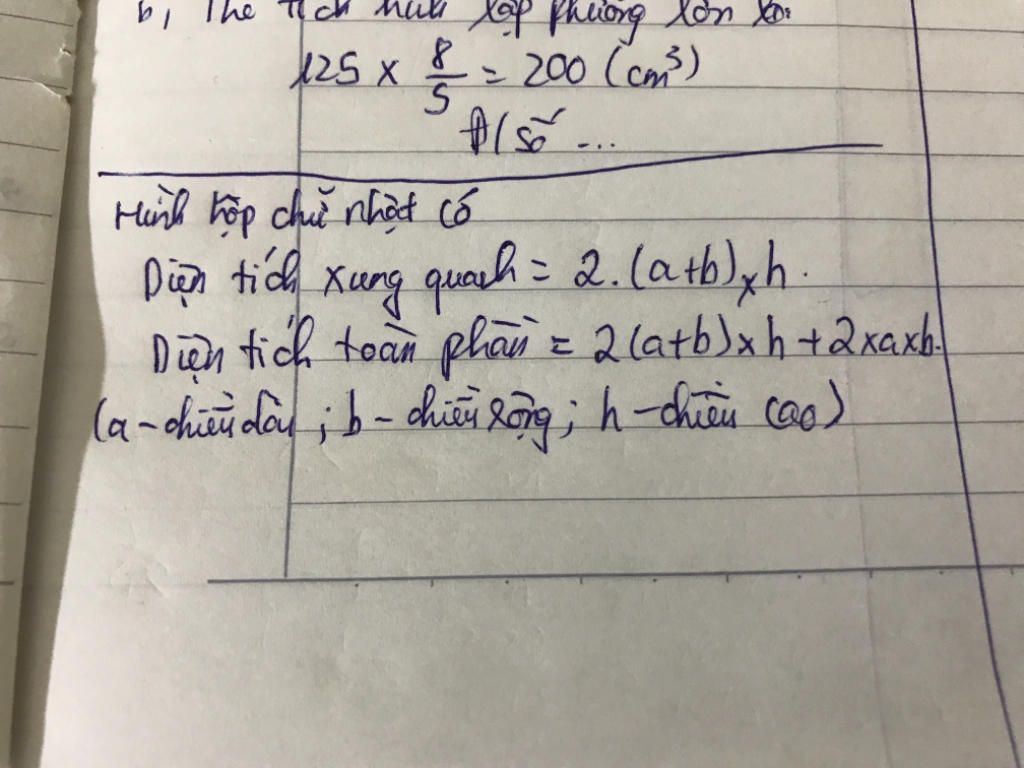 b, Thể tích hình lập phương lớn
125 x 8/5 = 200 (cm³)
Đ/số ...
Hình hộp chữ nhật có
Diện tích xung quanh = 2.(a+b) x h.
Diện tích toàn phần = 2(a+b) x h + 2 x a x b.
(a - chiều dài ; b - chiều rộng ; h - chiều cao)